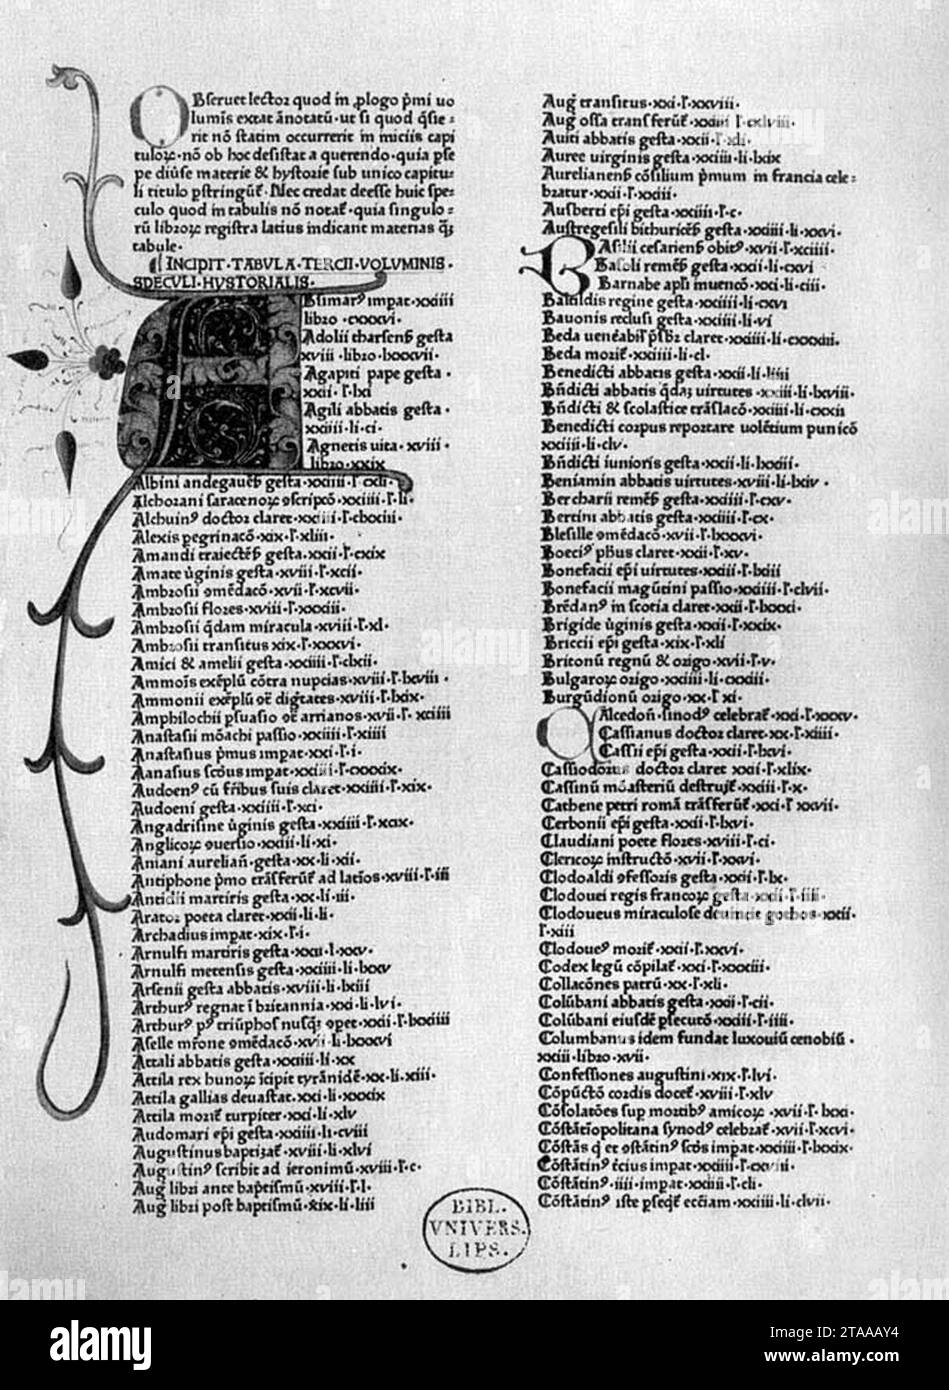 OBseruet lector quod in ꝓlogo p̄mi uo
lumīs extat ānotatū·ut si quod q̄sie⸗
rit nō statim occurrerit in iniciis capi
tuloꝝ·nō ob hoc desistat a querendo·quia pse
pe diūse materie & hystorie sub unico capitu⸗
li titulo pstringūt̄·Nec credat deesse huic spe⸗
culo quod in tabulis nō notat̄·quia singulo⸗
rū libroꝝ registra latius indicant materias q̄ꝫ
tabule·
INCIPIT·TABVLA·TERCII·VOLVMINIS·
SPECVLI·HYSTORIALIS·
ABsimarꝰ impat·xxiiii
libro·cxxxvi·
Adolii tharsenẜ gesta
xviii·libro·lxxxvii·
Agapiti pape gesta·
xxii·ſ·lxi
Agili abbatis gesta·
xxiiii·li·ci·
Agnetis uita·xviii·
libro·xxix
Albini andegauenẜ gesta·xxiiii·ſ·cxli·
Alchorani saracenoꝝ ꝯscripō·xxiiii·ſ·li·
Alchuinꝰ doctor claret·xxiiii·ſ·clxxiii·
Alexis pegrinacō·xix·ſ·xliii·
Amandi traiectenẜ gesta·xxii·ſ·cxix
Amate ūginis gesta·xviii·ſ·xcii·
Ambrosii ꝯmēdacō·xvii·ſ·xcvii·
Ambrosii flores·xviii·ſ·xxxiii·
Ambrosii q̄dam miracula·xviii·ſ·xl·
Ambrosii transitus xix·ſ·xxxvi·
Amici & amelii gesta·xxiiii·ſ·clxii·
Ammoīs exēplū cōtra nupcias·xviii·ſ·lxviii·
Ammonii exēplū ꝯt̄ dig̅tates·xviii·ſ·lxix·
Amphilochii psuasio ꝯt̄ arrianos·xvii·ſ·xciiii
Anastasii mōachi passio·xxiiii·ſ·xiiii
Anastasius p̄mus impat·xxi·ſ·i·
Aanasius scōus impat·xxiiii·ſ·cxxxix·
Audoenꝰ cū fr̄ibus suis claret·xxiiii·ſ·xix·
Audoeni gesta·xxiiii·ſ·xci·
Angadrisine ūginis gesta·xxiiii·ſ·xcix·
Anglicoꝝ ꝯuersio·xxiii·li·xi·
Aniani aurelian̄·gesta·xx·li·xii·
Antiphone p̄mo trāsferūt̄ ad latios·xviii·ſ·iii
Antidii martiris gesta·xx·li·iii·
Arator poeta claret·xxii·li·li·
Archadius impat·xix·ſ·i·
Arnulfi martiris gesta·xxii·l·xxv·
Arnulfi metensis gesta·xxiiii·li·lxxv
Arsenii gesta abbatis·xviii·li·lxiii
Arthurꝰ regnat ī britannia·xxi·li·lvi·
Arthurꝰ pꝰ triūphos nusq̄ꝫ ꝯpet·xxii·ſ·lxxiiii
Aselle mr̄one ꝯmēdacō·xvii·li·lxxxvi
Attali abbatis gesta·xxiiii·li·xx
Attila rex hunoꝝ īcipit tyrānidē·xx·li·xiii·
Attila gallias deuastat·xxi·li·xxxix
Attila morit̄ turpiter·xxi·li·xlv
Audomari ep̄i gesta·xxiiii·li·cviii
Augustinus baptizat̄·xviii·li·xlvi
Augustinꝰ scribit ad ieronimū·xviii·ſ·c·
Aug̅ libri ante baptismū·xviii·ſ·l·
Aug̅ libri post baptismū·xix·li·liii
Aug̅ transitus·xxi·ſ·xxviii·
Aug̅ ossa transferūt̄·xxiiii·ſ·cxlviii·
Auiti abbatis gesta·xxii·ſ·xli·
Auree uirginis gesta·xxiiii·li·lxix
Aurelianensẜ cōsilium p̄mum in francia cele⸗
bratur·xxii·ſ·xxiii·
Ausberti ep̄i gesta·xxiiii·ſ·c·
Austregesili bithuricenẜ gesta·xxiiii·li·xxvi·
BAsilii cesariensẜ obitꝰ·xvii·ſ·xciiii·
Basoli remenẜ gesta·xxii·li·cxvi
Barnabe apl̄i inuencō·xxi·li·ciii·
Batildis regine gesta·xxiiii·li·cxvi
Bauonis reclusi gesta·xxiiii·li·vi
Beda uenēabil̄ p̄sbꝫ claret·xxiiii·li·cxxxiii·
Beda morit̄·xxiiii·li·cl·
Benedicti abbatis gesta·xxii·li·liiii
Bn̄dicti abbatis q̄daꝫ uirtutes·xxiii·li·lxviii·
Bn̄dicti & scolastice trāslacō·xxiiii·li·cxxii
Benedicti corpus reportare uolētium punicō
xxiiii·li·clv·
Bn̄dicti iunioris gesta·xxii·li·lxxiii·
Beniamin abbatis uirtutes·xviii·li·lxiv·
Bercharii remenẜ gesta·xxiiii·ſ·cxv·
Bertini abbatis gesta·xxiiii·ſ·cx·
Blesille ꝯmēdacō·xvii·ſ·lxxxvi·
Boeciꝰ ph̄us claret·xxii·ſ·xv·
Bonefacii ep̄i uirtutes·xxii·ſ·lxiii
Bonefacii magūtini passio·xxiiii·ſ·clvii·
Brēdanꝰ in scotia claret·xxii·ſ·lxxxi·
Brigide ūginis gesta·xxii·ſ·xxix·
Briccii ep̄i gesta·xix·ſ·xli
Britonū regnū & origo·xvii·ſ·v·
Bulgaroꝝ origo·xxiiii·li·cxxiii·
Burgūdionū origo·xx·ſ·xi·
CAlcedon̄·sinodꝰ celebrat̄·xxi·ſ·xxxv·
Cassianus doctor claret·xx·ſ·xiiii·
Cassii ep̄i gesta·xxii·ſ·lxvi·
Cassiodorus doctor claret xxii·ſ·xlix·
Cassinū mōasteriū destruit̄·xxiii·ſ·x·
Cathene petri romā trāsferūt̄·xxi·ſ xxvii·
Cerbonii ep̄i gesta·xxii·ſ·lxvi·
Claudiani poete flores·xviii·ſ·ci·
Clericoꝝ instructō·xvii·ſ·xxvi·
Clodoaldi ꝯfessoris gesta·xxii·ſ·lx·
Clodouei regis francoꝝ gesta·xxii·ſ·iiii·
Clodoueus miraculose deuincit gothos·xxii·
ſ·xiii
Clodoueꝰ morit̄·xxii·ſ·xxvi·
Codex legū cōpilat̄·xxi·ſ·xxxiii·
Collacōnes patrū·xx·ſ·xli·
Colūbani abbatis gesta·xxii·ſ·cii·
Colūbani eiusdē psecutō·xxiii·ſ·iiii·
Columbanus idem fundat luxouiū cenobiū·
xxiii·libro·xvii·
Confessiones augustini·xix·ſ·lvi·
Cōpūctō cordis docet̄·xviii·ſ·xlv
Cōsolatōes sup mortibꝰ amicoꝝ·xvii·ſ·lxxi·
Cōstātiopolitana synodꝰ celebrat̄·xvii·ſ·xcvi·
Cōstās q̄ et ꝯstātinꝰ scōs impat·xxiiii·ſ·lxxix·
Cōstātinꝰ t̄cius impat·xxiiii·ſ·cxviii·
Cōstātinꝰ·iiii·impat·xxiiii·ſ·cli·
Cōstātinꝰ iste pseqt̄ ecc̄iam·xxiiii·li·clvii·
BIBL.
VNIVERS.
LIPS.
alamy
Image ID: 2TAAAY4
www.alamy.com